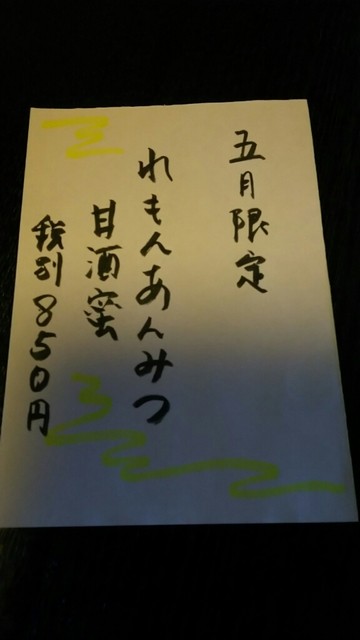 五月限定
れもんあんみつ
甘酒蜜
税別850円